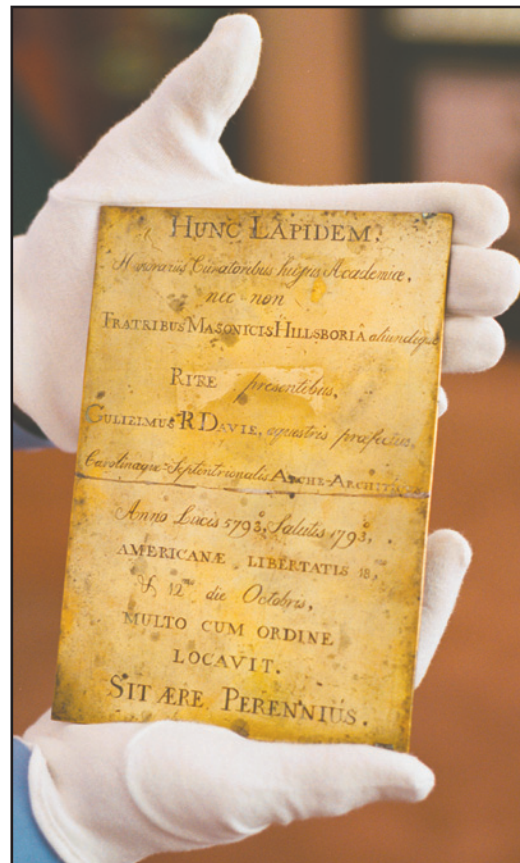 HUNC LAPIDEM,
Honorariis Curatoribus hujus Academiæ,
nec non
FRATRIBUS MASONICIS HILLSBORIA aliundique
RITE presentebus,
GULIELMUS R DAVIE, equestris præfectus,
Carolinaque-Septentrionalis ARCHE-ARCHITECTUS
Anno Lucis 5793°, Salutis 1793°,
AMERICANÆ LIBERTATIS 18,
& 12mo die Octobris,
MULTO CUM ORDINE
LOCAVIT.
SIT ÆRE PERENNIUS.